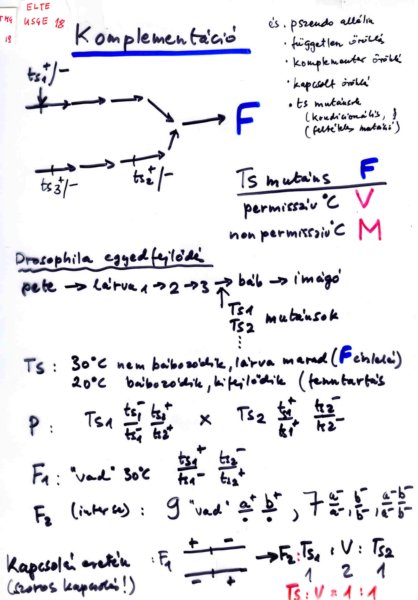 ELTE
USGE 18
18
Komplementáció
és. pszeudo allélia
· független öröklő
· komplementer öröklő
· kapcsolt öröklő
· ts mutánsok
(kondicionális,
(feltételes mutáció)
ts1+/-
F
ts3+/- ts2+/-
Ts mutáns F
permisszív °C V
non permisszív °C M
Drosophila egyedfejlődés
pete → lárva 1 → 2 → 3 → báb → imágó
Ts1
Ts2 mutánsok
Ts: 30°C nem bábozódik, lárva marad (F
20°C bábozódik, kifejlődik (fenntartás
P: Ts1 ts1-/ts1- ts2+/ts2+ × Ts2 ts1+/ts1+ ts2-/ts2-
F1: "vad" 30°C ts1+/ts1- ts2-/ts2+
F2 (interse): 9 "vad" a+/. b+/. , 7 a-/a-, b-/b-, a-b-/a-b-
Kapcsolás esetén : F1 + - / - + → F2: Ts1 : V : Ts2
(szoros kapcsolás!) 1 2 1
Ts : V = 1 : 1